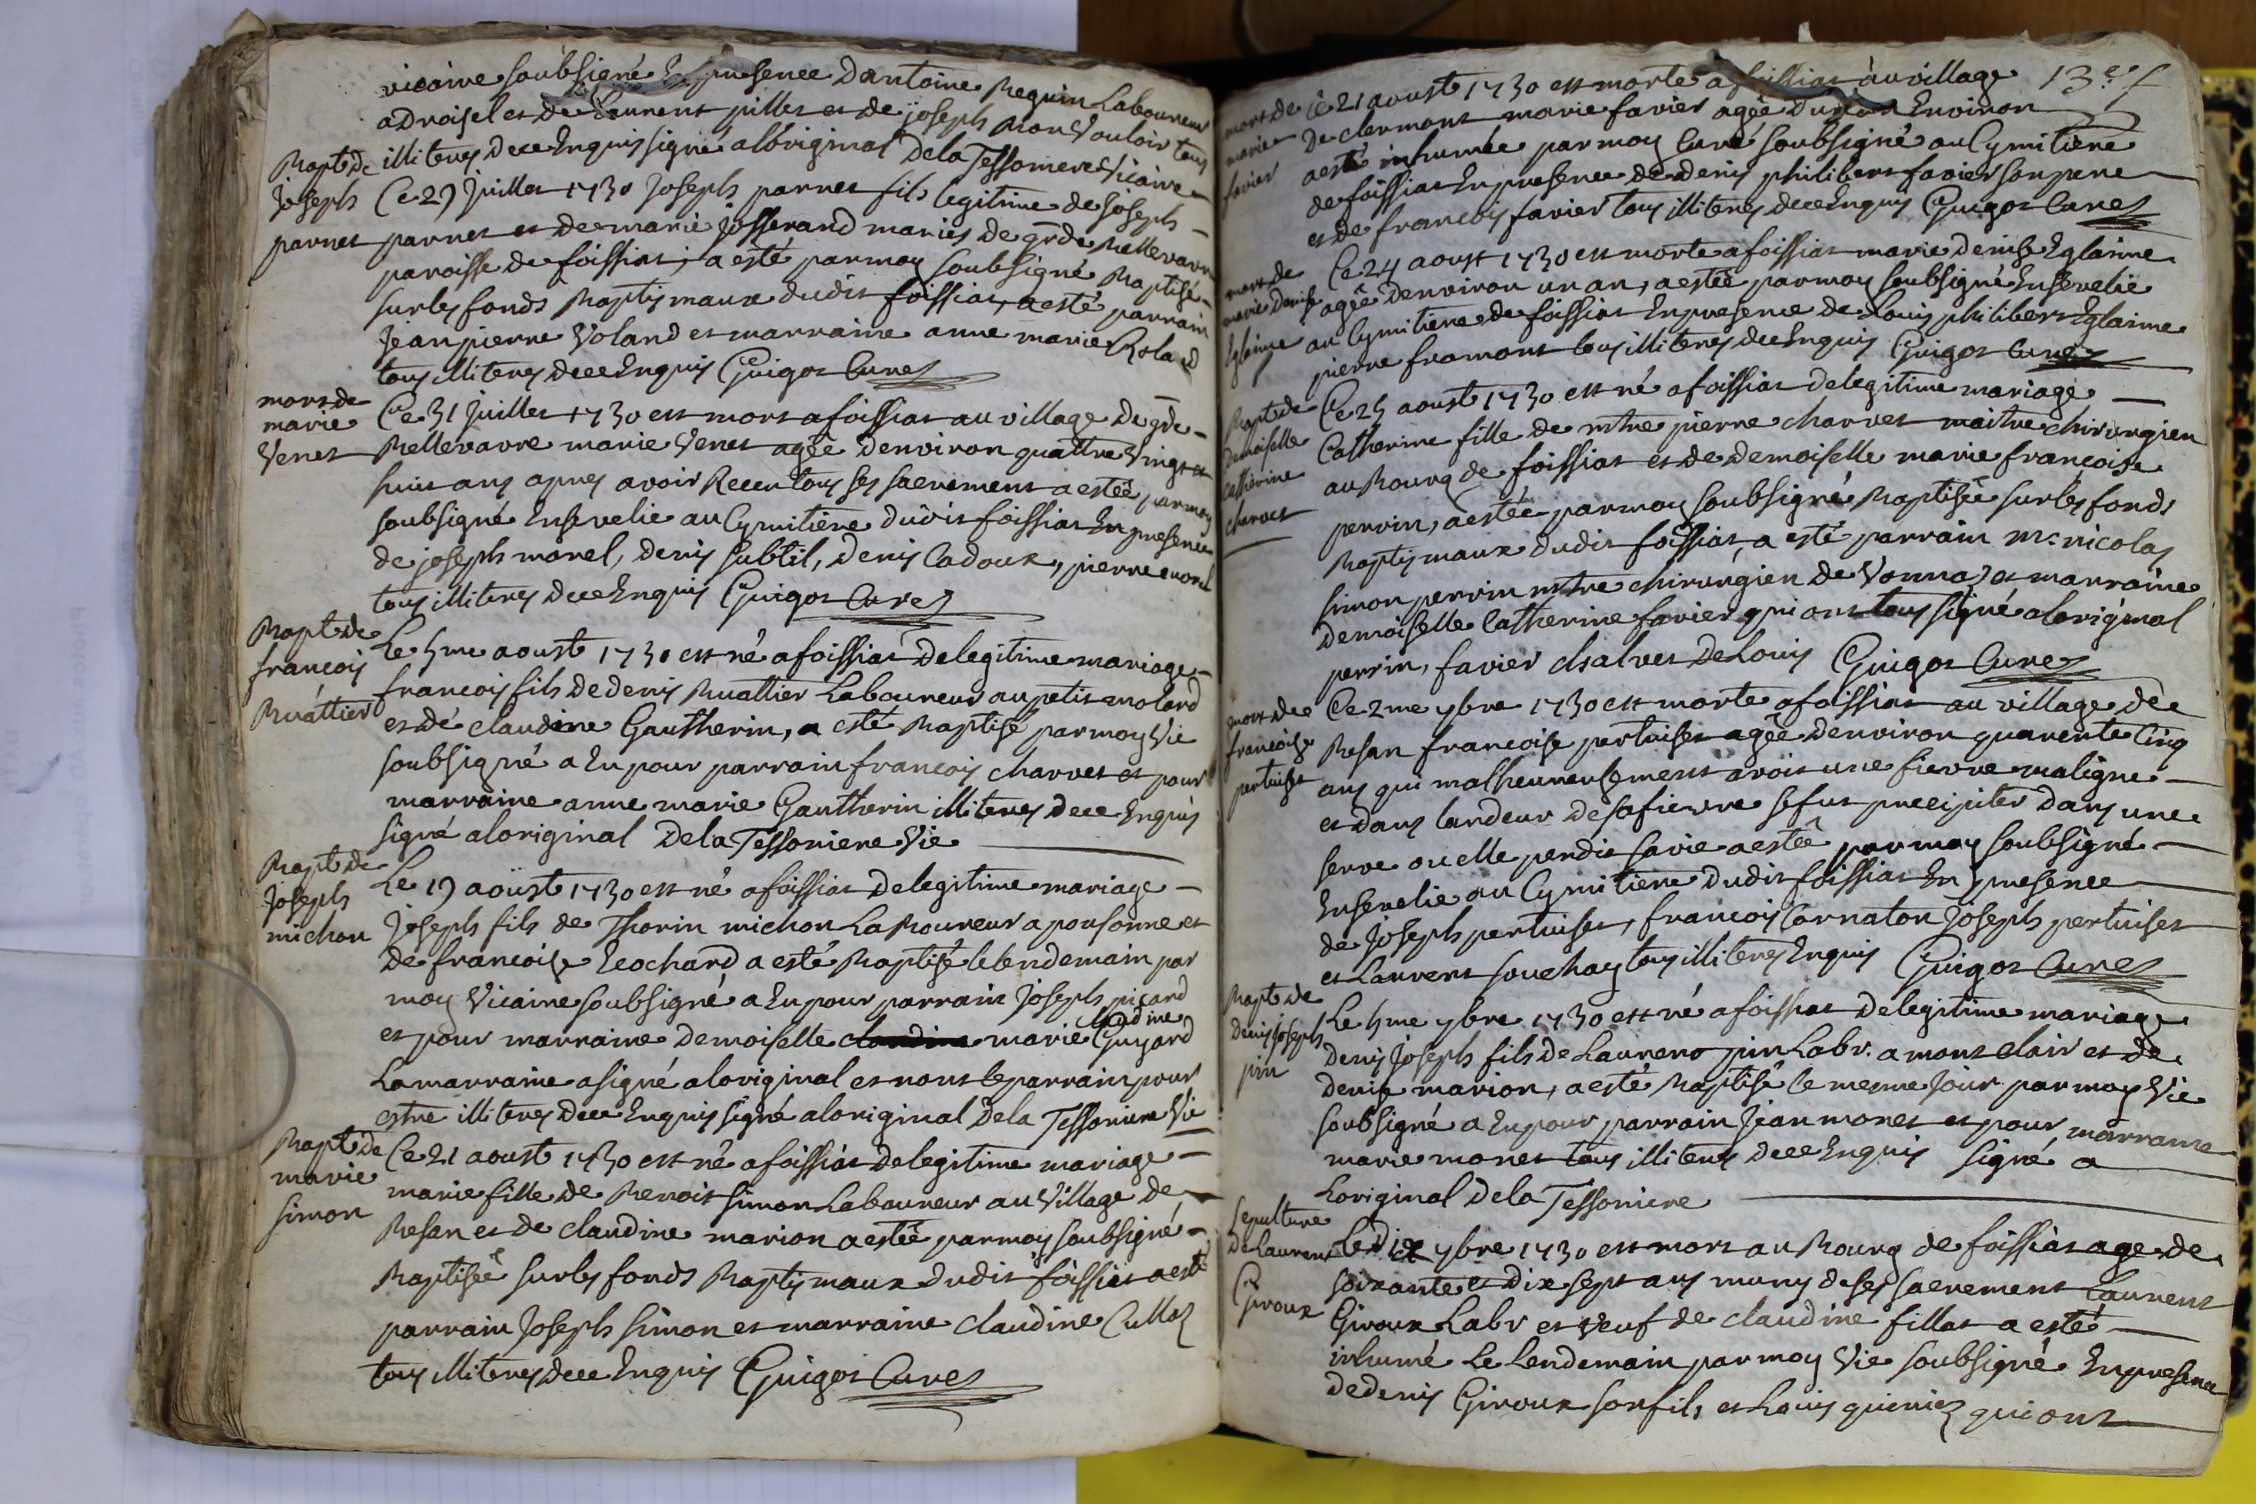 vicaire soubsigné En presence dantoine Reguin Laboureur
a Droisel et de Laurent pillet et de joseph Mon Vouloir tous
Bapt de
joseph
parnet
illiteres de ce Enquis signé a loriginal Dela Tessoniere Vicaire
Ce 27 juillet 1730 joseph parnet fils legitime de joseph
parnet et de marie josserand mariés de grde Bellevavre
paroisse de foissiat, a esté par moy soubsigné Baptisé
sur les fonds Baptismaux dudit foissiat, a esté parrain
jean pierre Voland et marraine anne marie Roland
tous illiteres de ce Enquis Guigot Curé
mort de
marie
Venet
Ce 31 juillet 1730 est mort a foissiat au village de grde
Bellevavre marie Venet agée denviron quattre Vingt et
huit ans apres avoir Receu tous ses sacrement a estée par moy
soubsigné Ensevelie au Cymitiére dudit foissiat En presence
de joseph morel, denis subtil, denis Cadoux, pierre morel
tous illiteres de ce Enquis Guigot Curé
Bapt de
francois
Buattier
Le 5me aoust 1730 est né a foissiat de legitime mariage
francois fils de denis Buattier Laboureur au petit molard
et de claudine Gautherin, a esté Baptisé par moy Vic
soubsigné a Eu pour parrain francois charvet et pour
marraine anne marie Gautherin illiteres de ce Enquis
signé a loriginal Dela Tessoniere Vic
Bapt de
joseph
michon
Le 17 aoust 1730 est né a foissiat de legitime mariage
joseph fils de Thorin michon Laboureur a ponsonne et
de francoise Ecochard a esté Baptisé le lendemain par
moy Vicaire soubsigné a Eu pour parrain joseph picard
et pour marraine demoiselle claudine marie claudine Guyard
La marraine a signé a loriginal et nont le parrain pour
estre illiteres de ce Enquis signé a loriginal Dela Tessoniere Vic
Bapt de
marie
simon
Ce 21 aoust 1730 est né a foissiat de legitime mariage
marie fille de Benoit simon Laboureur au Village de
Besan et de claudine marion a estée par moy soubsigné
Baptisée sur les fonds Baptismaux dudit foissiat a esté
parrain joseph simon et marraine claudine Cullet
tous illiteres de ce Enquis Guigot Curé
13e f
mort de
marie
favier
Ce 21 aoust 1730 est morte a foissiat au village
de clermont marie favier agée dun an Environ
a esté inhumée par moy Curé soubsigné au Cymitiere
de foissiat En presence de denis philibert favier son pere
et de francois favier tous illiteres de ce Enquis Guigot Curé
mort de
marie denise
Eglaime
Ce 24 aoust 1730 est morte a foissiat marie denise Eglaime
agée denviron un an, a estée par moy soubsigné Ensevelie
au Cymitiere de foissiat En presence de Louis philibert Eglaime
pierre framont tous illiteres de ce Enquis Guigot Curé
Bapt de
demoiselle
catherine
charvet
Ce 25 aoust 1730 est né a foissiat de legitime mariage
Catherine fille de mtre pierre charvet maitre chirurgien
au Bourg de foissiat et de demoiselle marie françoise
perrin, a estée par moy soubsigné Baptisée sur les fonds
Baptismaux dudit foissiat, a esté parrain mr nicolas
simon perrin mtre chirurgien de Vonnas et marraine
demoiselle Catherine favier qui ont tous signé a loriginal
perrin, favier chalvet De Louis Guigot Curé
mort de
francoise
pertuiset
Ce 2me 7bre 1730 est morte a foissiat au village de
Besan francoise pertuiset agée denviron quarente Cinq
ans qui malheureusement avoit une fievre maligne
et dans lardeur de sa fievre se fut precipiter dans une
serve ou elle perdit sa vie a estée par moy soubsigné
Ensevelie au Cymitiere dudit foissiat En presence
de joseph pertuiset, francois Cornaton joseph pertuiset
et Laurent souchay tous illiteres Enquis Guigot Curé
Bapt de
denis joseph
pin
Le 5me 7bre 1730 est né a foissiat de legitime mariage
denis joseph fils de Laurent pin Labr. a mont clair et de
denise marion, a esté Baptisé le meme jour par moy Vic
soubsigné a Eu pour parrain jean monet et pour marraine
marie monet tous illiteres de ce Enquis signé a
Loriginal Dela Tessoniere
sepulture
De Laurent
Giroux
Le dix 7bre 1730 est mort au Bourg de foissiat age de
soixante et dix sept ans muny de ses sacrement Laurent
Giroux Labr et veuf de claudine fillat a esté
inhumé Le Lendemain par moy Vic soubsigné En presence
de denis Giroux son fils et Louis queniez qui ont